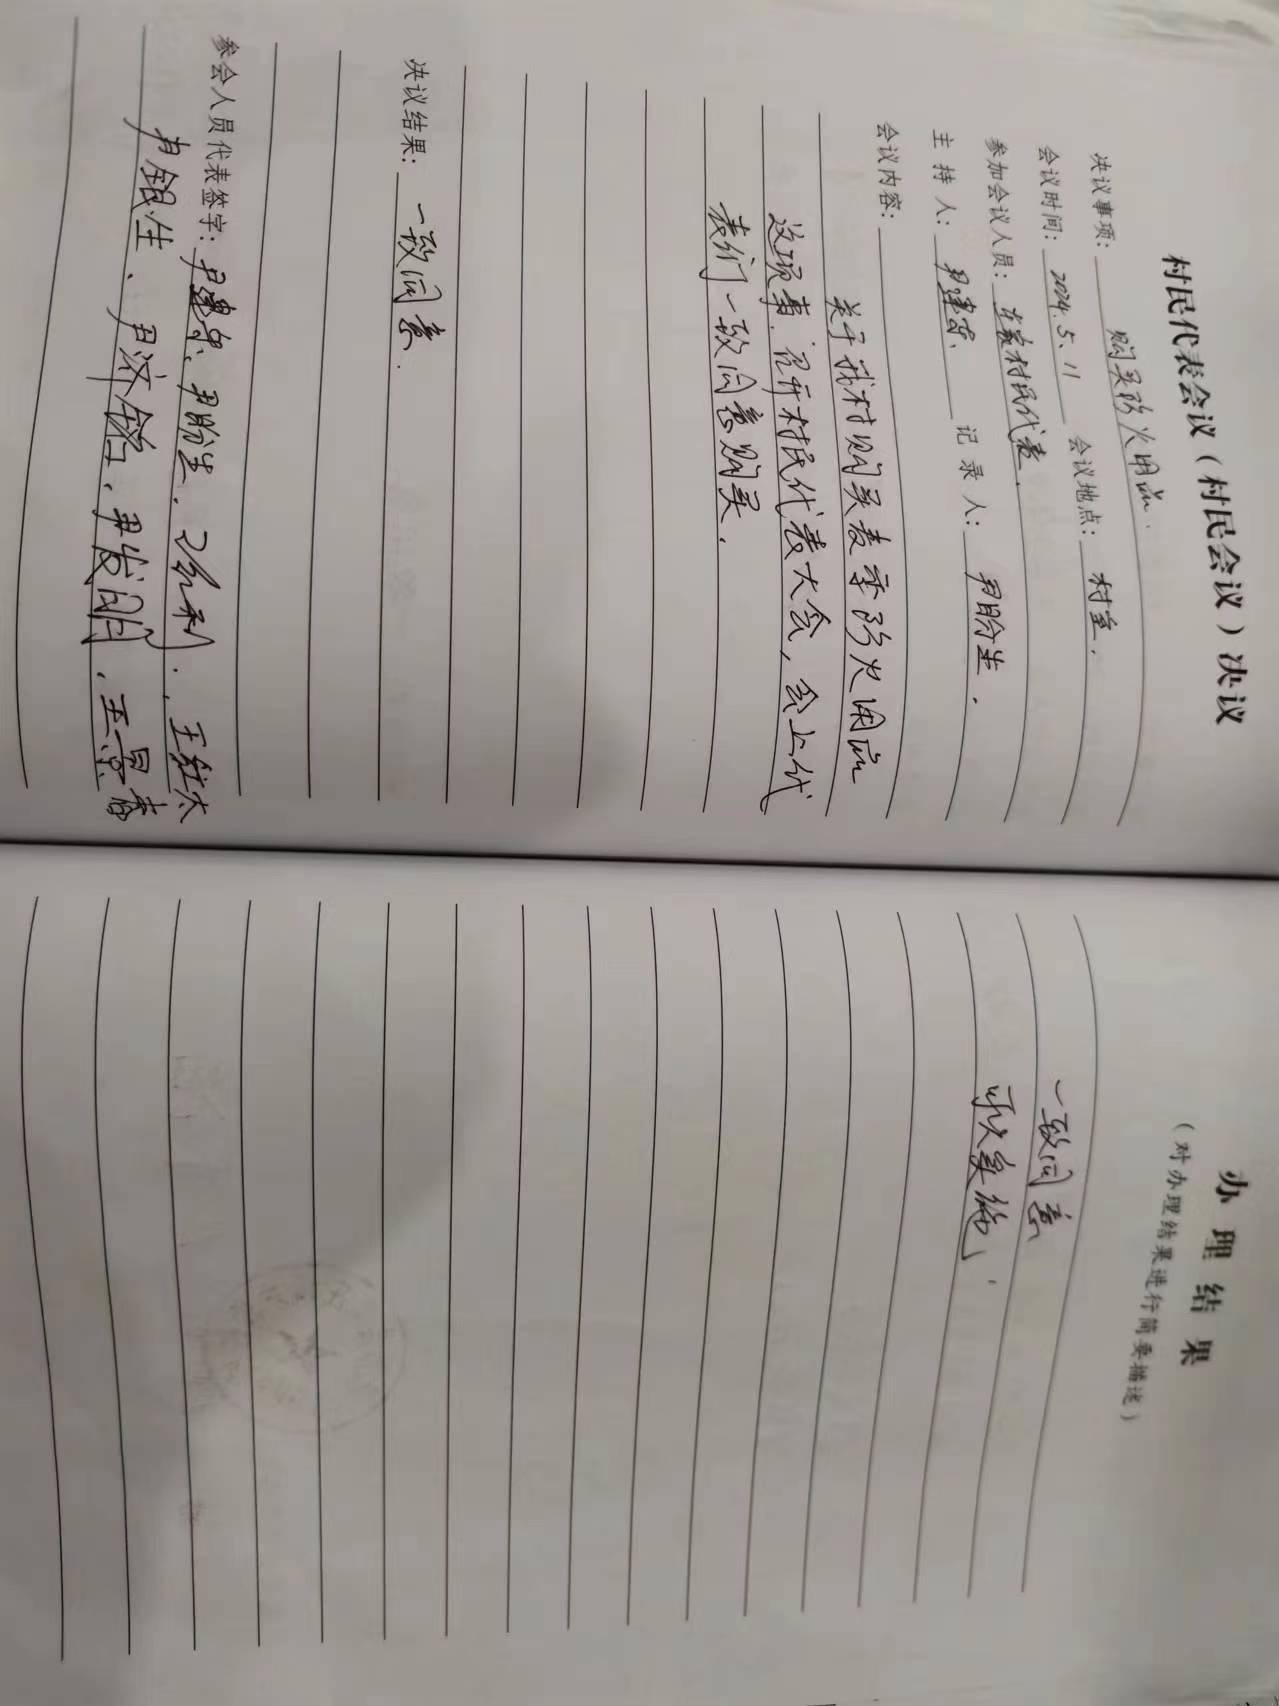 村民代表会议（村民会议）决议
决议事项： 购买防火用品.
会议时间： 2024.5.11 会议地点： 村室.
参加会议人员： 村民代表.
主持人： 尹建 记录人： 尹盼生.
会议内容：
关于我村购买麦季防火用品
这项事.召开村民代表大会，会上代
表们一致同意购买.
决议结果： 一致同意.
参会人员代表签字： 尹建 、尹盼生. 利. 王
尹银生、尹济铭.尹发明.王景春
办理结果
（对办理结果进行简要描述）
一致同意
实施.